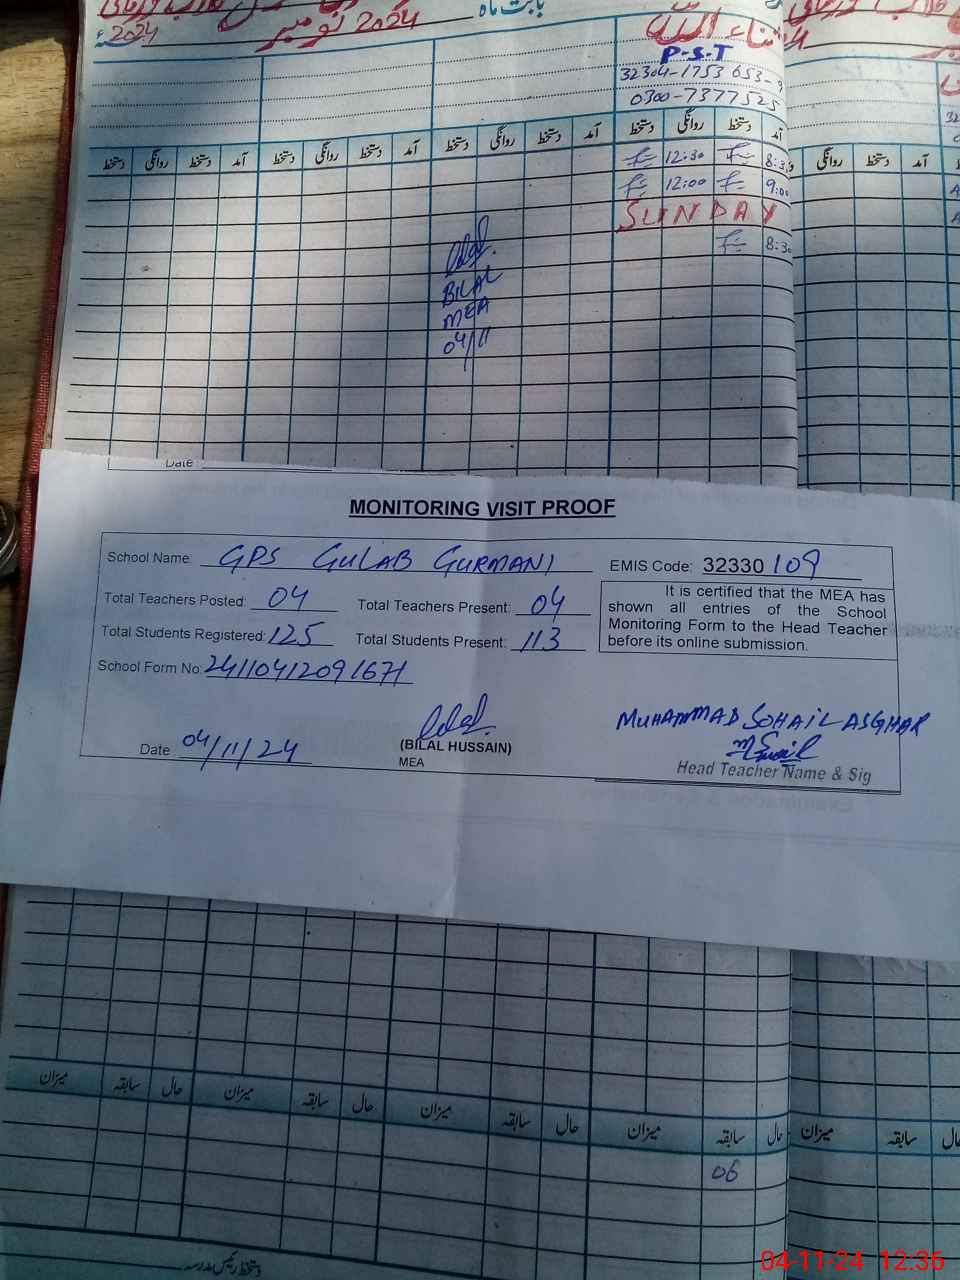 2024
نومبر 2024
بابت ماہ
ثناء اللہ
P-S-T
32304-1753653-9
0300-7377525
دستخط روانگی دستخط آمد دستخط روانگی دستخط آمد دستخط روانگی دستخط آمد دستخط روانگی دستخط آمد روانگی دستخط آمد
12:30 8:30
12:00 9:00
SUNDAY
8:30
BILAL
MEA
04/11
Date
MONITORING VISIT PROOF
School Name: GPS GULAB GURMANI EMIS Code: 32330109
Total Teachers Posted: 04 Total Teachers Present: 04
Total Students Registered: 125 Total Students Present: 113
It is certified that the MEA has
shown all entries of the School
Monitoring Form to the Head Teacher
before its online submission.
School Form No: 24110412091671
Date 04/11/24
(BILAL HUSSAIN)
MEA
MUHAMMAD SOHAIL ASGHAR
Head Teacher Name & Sig
میزان سابقہ حال میزان سابقہ حال میزان سابقہ حال میزان سابقہ حال میزان سابقہ
06
دستخط رئیس مدرسہ
04-11-24 12:35